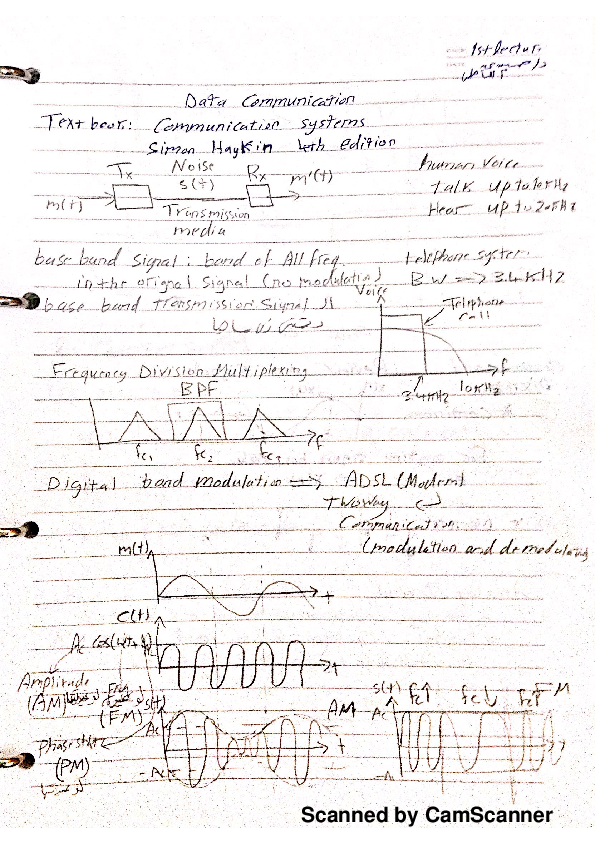 1st Lecture
Data Communication
Textbook: Communication systems
Simon Haykin 4th edition
Tx Noise Rx
s(t)
m(t) m'(t)
Transmission
media
human voice
talk up to 10 kHz
Hear up to 20 kHz
base band signal: band of All freq.
in the orignal signal (no modulation)
base band transmission signal
telephone system
B.W => 3.4 KHZ
Voice
Telephone
call
f
3.4 kHz 10 kHz
Frequency Division Multiplexing
BPF
fc1 fc2 fc3 f
Digital band modulation => ADSL (Modem)
Two Way
Communication
(modulation and demodulation
m(t)
t
c(t)
Ac cos(wt+
t
Amplitude
(AM)
(FM)
s(t)
Ac
-Ac
AM
t
Phase
(PM)
s(t) fc↑ fc↓ fc↑ FM
Ac
Scanned by CamScanner